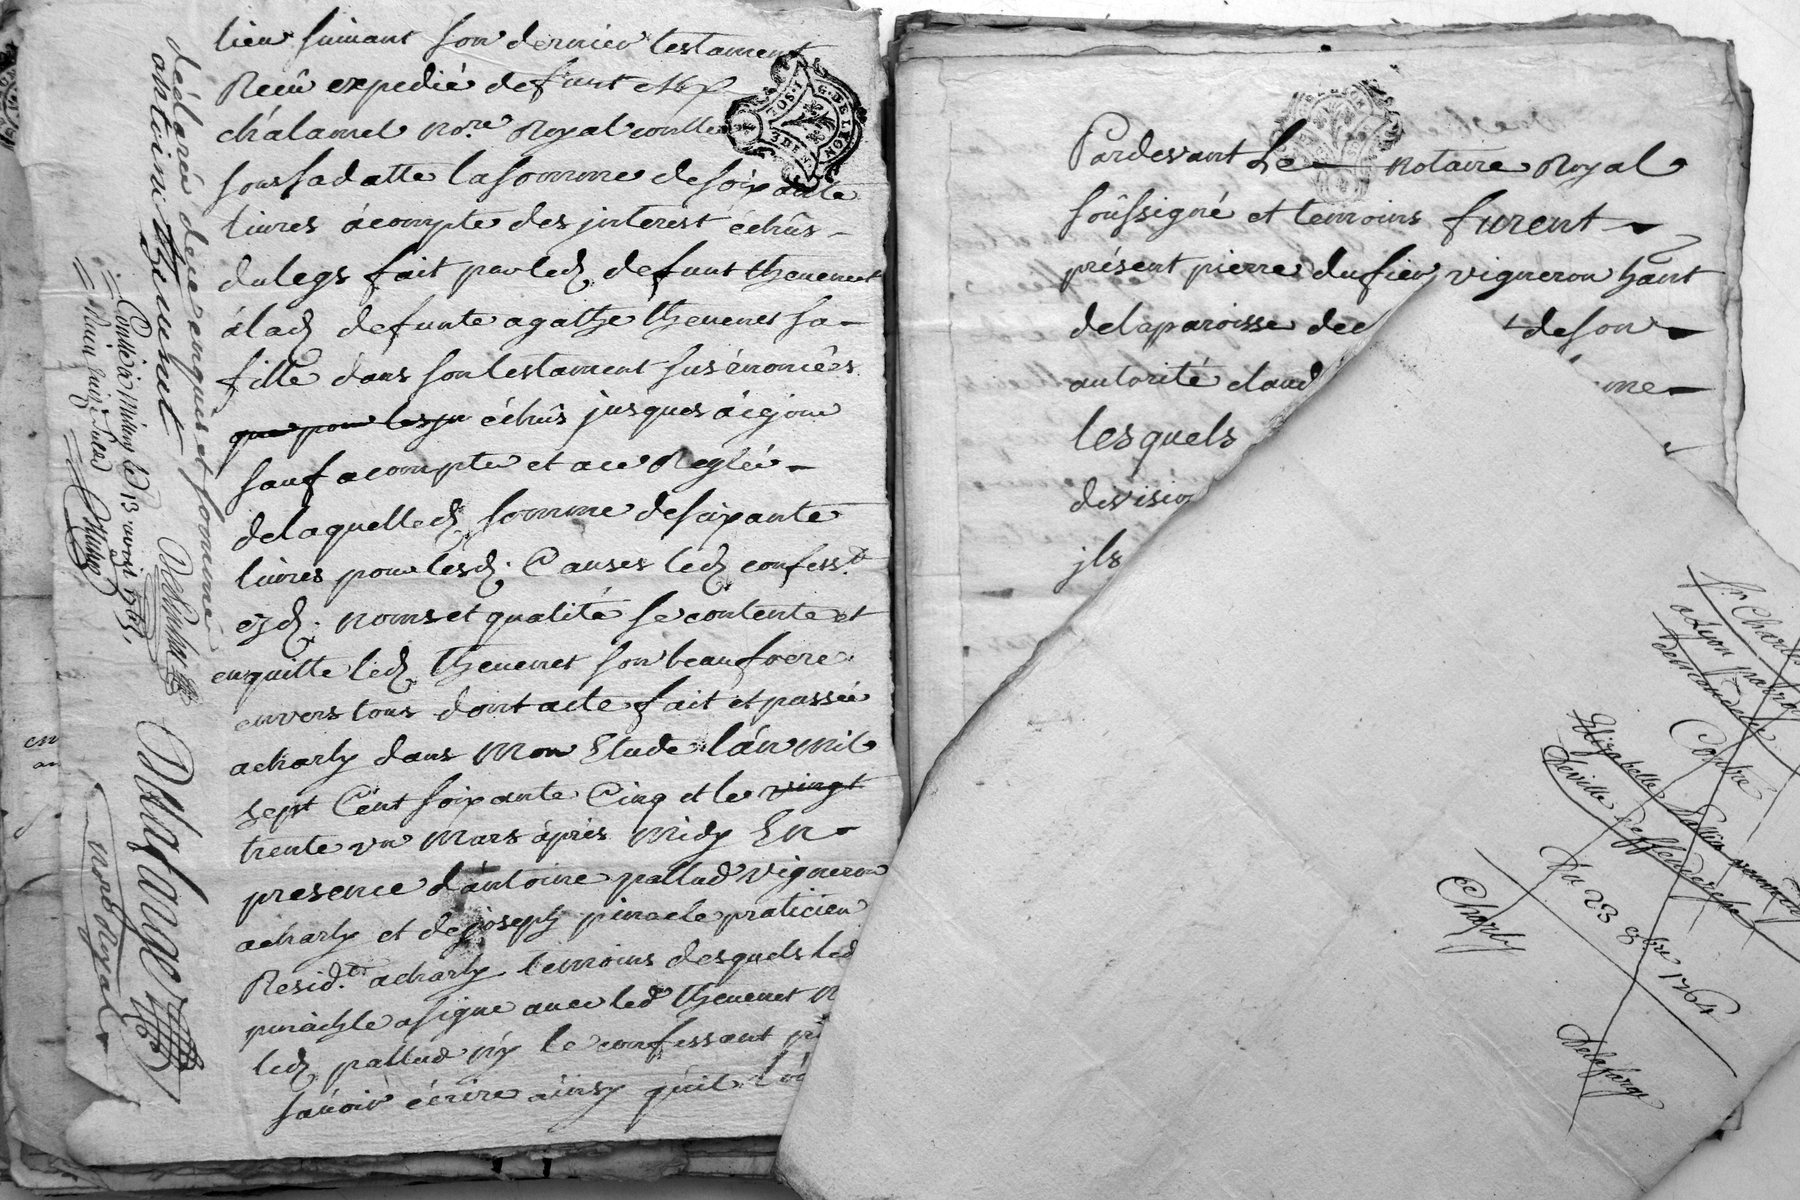 lieu suivant son dernier testament
Recû expedié defunt
chalamel no.re Royal
sous sa datte la somme de soixante
livres àcompte des jnterest échûs
du legs fait par led. defunt thevenet
à lad. defunte agathe thevenet sa
fille dans son testament sus énoncés
échûs jusques àcejour
sauf acompter et ace Reglée
de laquelled. somme de soixante
livres pour lesd. Causes led. confess.t
ezd. noms et qualité se contente et
en quitte led. thevenet son beaufrere
envers tous dont acte fait et passée
acharly dans Mon Etude l'an Mil
sept Cent soixante Cinq et le vingt
trente un Mars après Midy En
presence d'antoine pallud vigneron
acharly et de joseph pinacle praticien
Resid.t acharly temoins desquels led
pinacle asigné avec led. thevenet N
led. pallud ny le confessant
savoir écrire ainsy qu'il
déclarée de ce enquis et sommé
antoine thevenet
Controllé à Millery le 13 avril 1765
Delafarge
nore Royal
G. DE LYON
3 DEN.
Pardevant Le notaire Royal
soussigné et temoins furent
présent pierre dufieu vigneron hant
de la paroisse de de son
autorité claud
lesquels
devision
jls
Sr Charles
a Lyon
demandeur
Contre
Elizabelle
deville deffenderesse
Du 23 9bre 1764
Charly
Delafarge